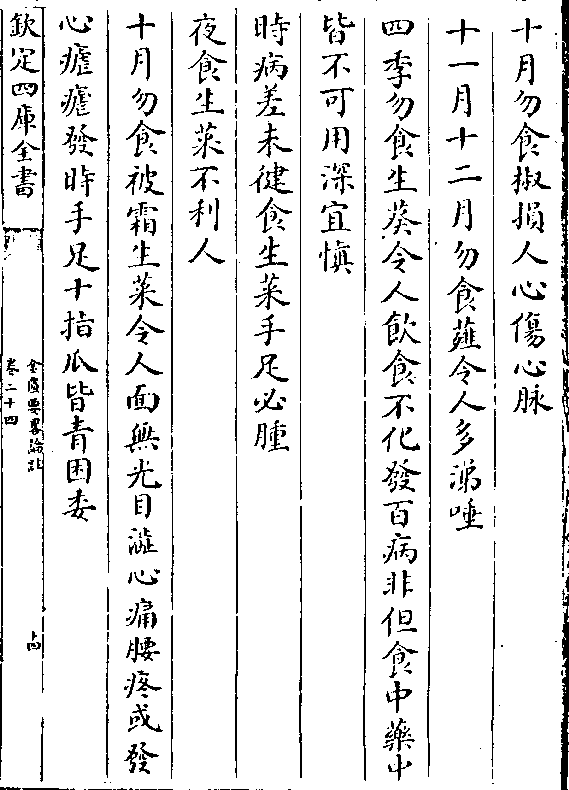 十月勿食椒損人心傷心脉
十一月十二月勿食薤令人多涕唾
四季勿食生葵令人飲食不化發百病非但食中藥中
皆不可用深宜慎
時病差未健食生菜手足必腫
夜食生菜不利人
十月勿食被霜生菜令人面無光目澁心痛腰疼或發
心瘧瘧發時手足十指爪皆青困委
欽定四庫全書
金匱要畧論註
卷二十四